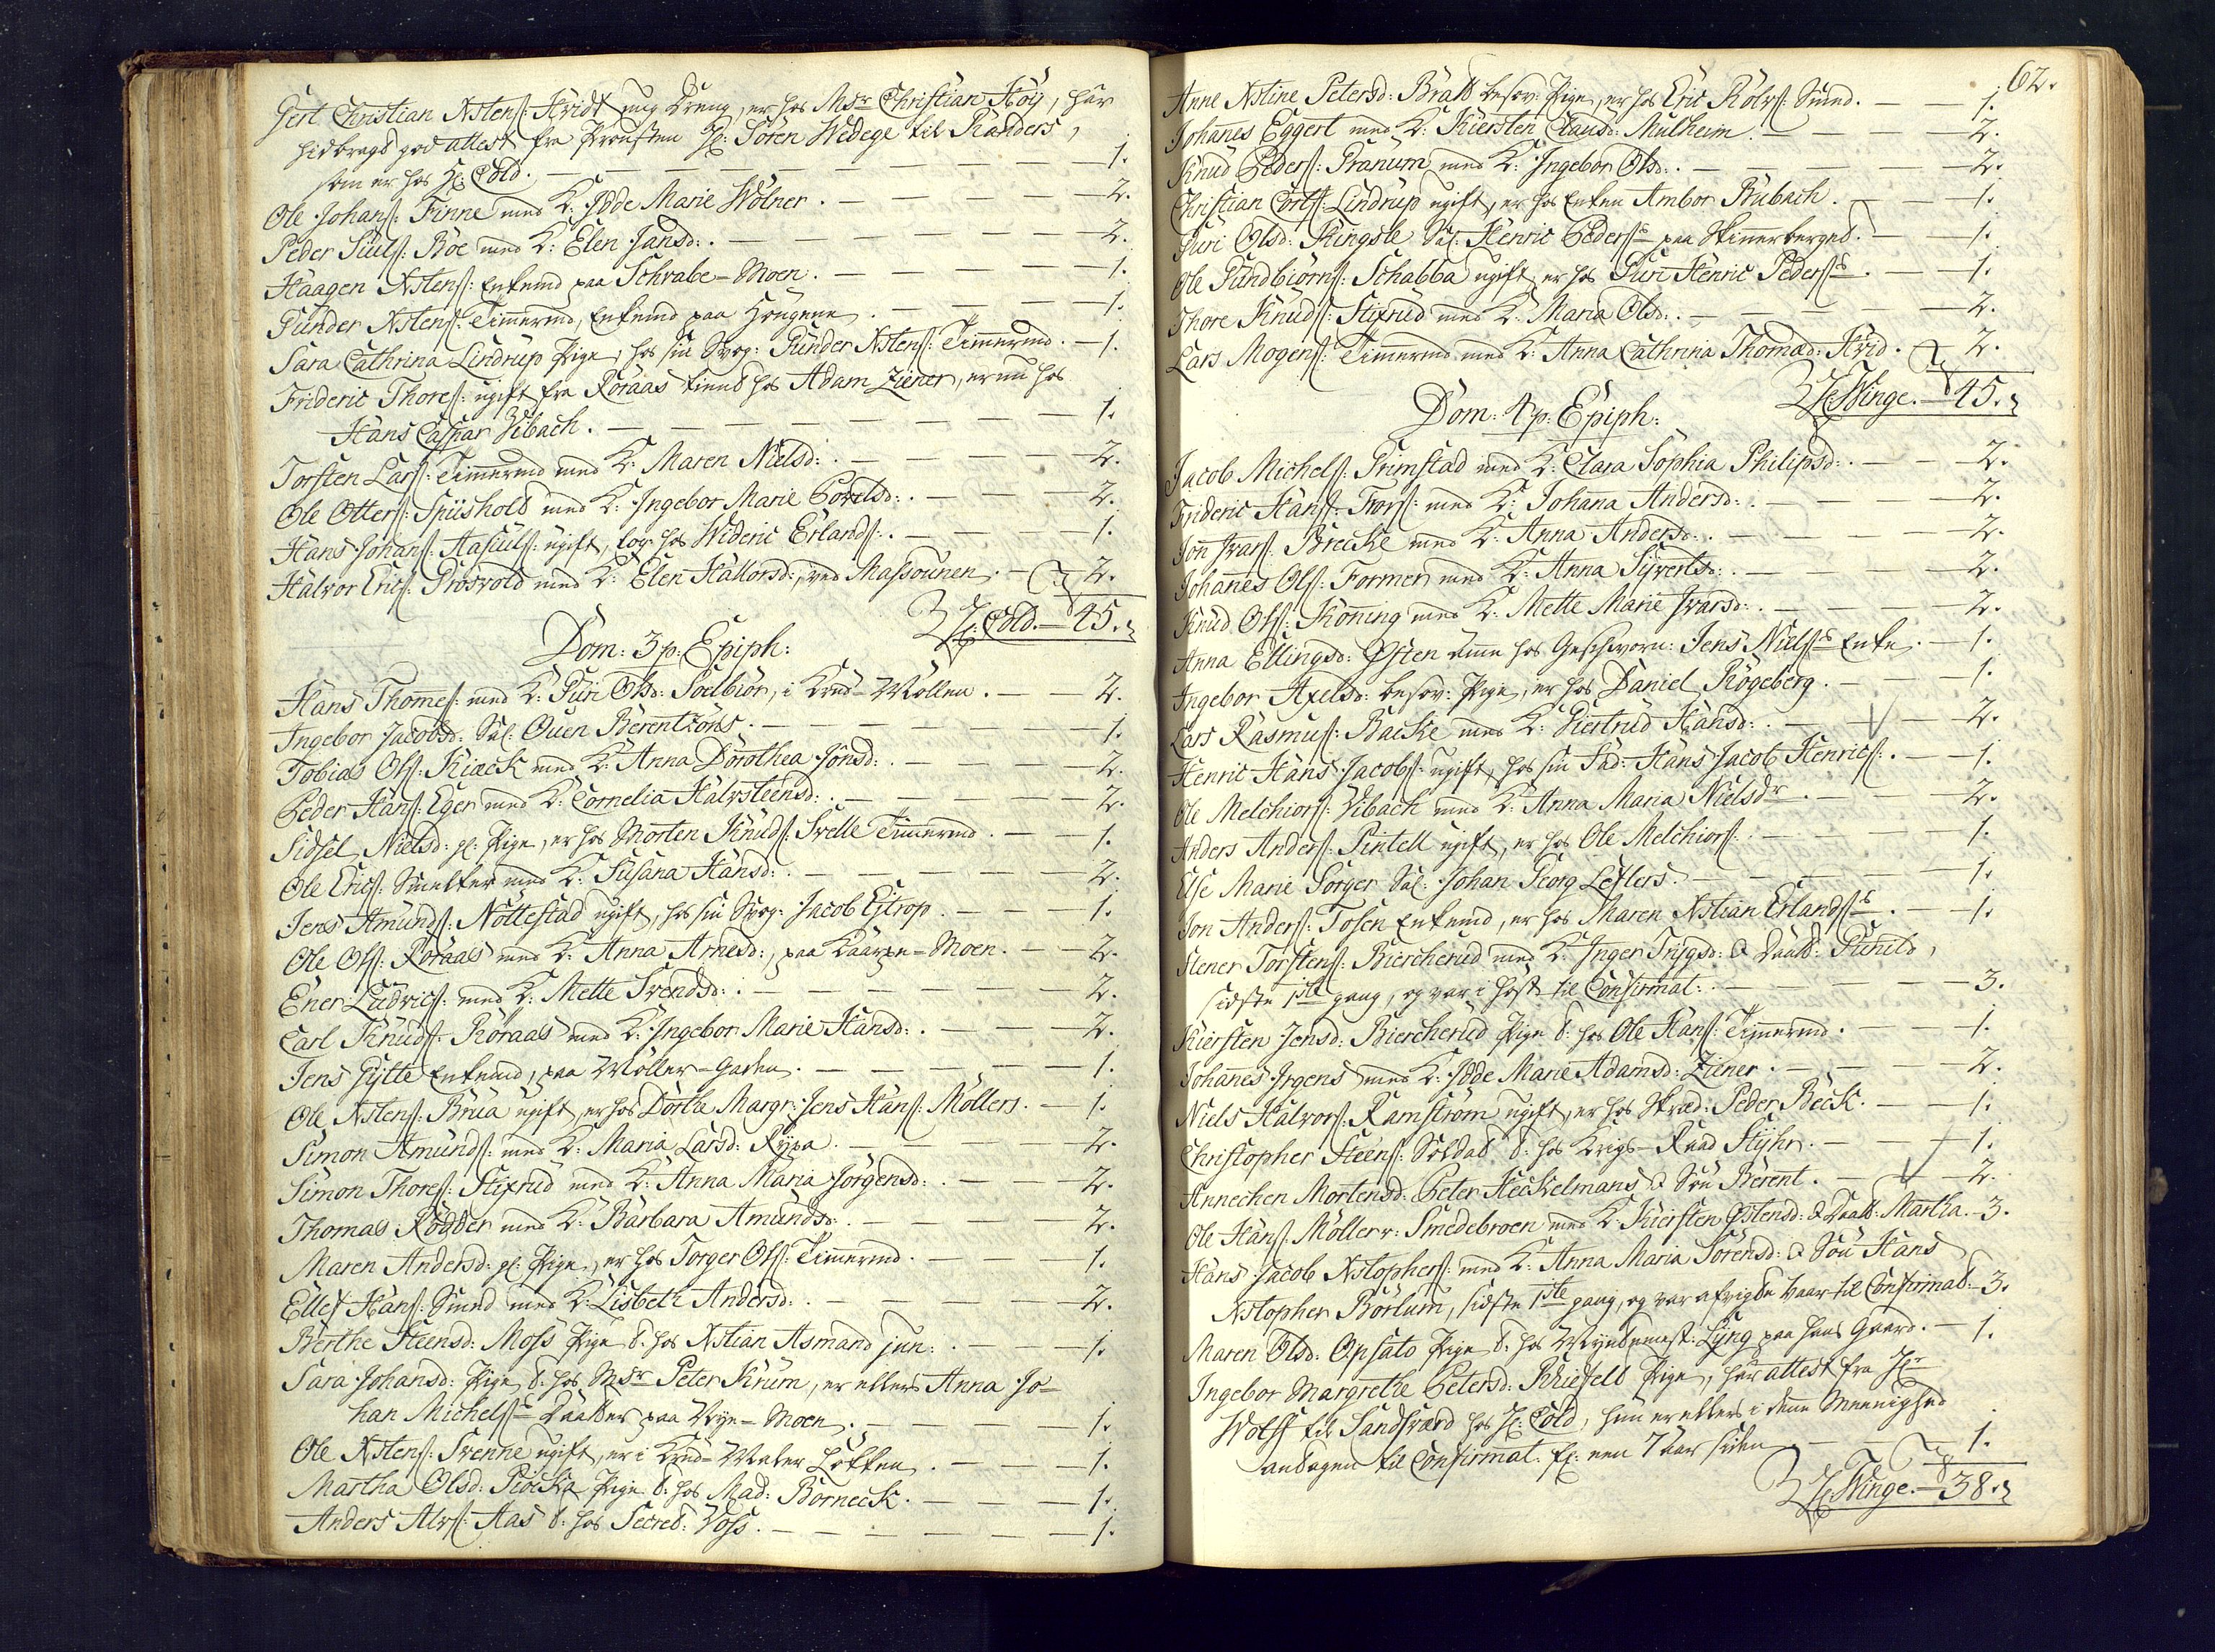 Gert Christian Xstens: Hvidt ung Dreng, er hos Msr Christian Höij, har
hidbragt god attest fra Provsten Hr: Sören Wedege til Randers,
som er hos Hr: Cold. — 1.
Ole Johans: Finne med K: Jdde Marie Wölner. — 2.
Peder Siuls: Böe med K: Elen Jansd:. — 2.
Haagen Xstens: Enkemd paa Schrabe-Moen. — 1.
Gunder Xstens: Timermd, Enkemd paa Hougene. — 1.
Sara Cathrina Lindrup Pige, hos sin Svog: Gunder Xstens: Timermd. — 1.
Frideric Thores: ugift fra Röraas tient hos Adam Ziener, er nu hos
Hans Caspar Vibach. — 1.
Torsten Lars: Timermd med K: Maren Nielsd:. — 2.
Ole Otters: Spiishold med K: Ingebor Marie Povelsd:. — 2.
Hans Johans: Aasiuls: ugift, log: hos Wideric Erlands:. — 1.
Halvor Erics: Prösvold med K: Elen Hallorsd:, ved Massounen. — 2.
Hr: Cold. — 45.
Dom: 3 p: Epiph:
Hans Thomes: med K: Guri Olsd: Soelbiör, i Krud-Möllen. — 2.
Ingebor Jacobsd: Sal: Ouen Berentzöns. — 1.
Tobias Ols: Kiæck med K: Anna Dorothea Jonsd:. — 2.
Peder Hans: Eger med K: Cornelia Halvsteensd:. — 2.
Sidsel Nielsd: gl: Pige, er hos Morten Knuds: Svelle Timermd. — 1.
Ole Erics: Smelter med K: Susana Hansd:. — 2.
Jens Amunds: Nöttestad ugift, hos sin Svog: Jacob Ejtrop. — 1.
Ole Ols: Röraas med K: Anna Arnesd:, paa Kaarpe-Moen. — 2.
Ener Ludvics: med K: Mette Svendsd:. — 2.
Carl Knuds: Röraas med K: Ingebor Marie Hansd:. — 2.
Jens Gytte Enkemd, paa Möller-Gaden. — 1.
Ole Xstens: Brua ugift, er hos Dorthe Margr: Jens Hans: Möllers. — 1.
Simon Amunds: med K: Maria Larsd: Rypa. — 2.
Simon Thores: Stixrud med K: Anna Maria Jörgensd:. — 2.
Thomas Rödder med K: Barbara Amundsd:. — 2.
Maren Andersd: gl: Pige, er hos Torger Ols: Timermd. — 1.
Ellef Hans: Smed med K: Lisbeth Andersd:. — 2.
Berthe Steensd: Moss Pige t: hos Xstian Asmand jun:. — 1.
Sara Johansd: Pige t: hos Msr Peter Krum, er ellers Anna Jo-
han Michelss Daatter paa Nye-Moen. — 1.
Ole Xstens: Svenne ugift, er i Krud-Maler Lökken. — 1.
Martha Olsd: Giöcka Pige t: hos Mad: Borneck. — 1.
Anders Alvs: Aas t: hos Secret: Voss. — 1.
62.
Anne Xstine Petersd: Bratt besov: Pige, er hos Eric Rolvs: Smed. — 1.
Johanes Eggert med K: Kiersten Clausd: Mulheim. — 2.
Knud Peders: Granum med K: Ingebor Olsd:. — 2.
Christian Corts: Lindrup ugift, er hos Enken Ambor Rubach. — 1.
Guri Olsd: Ringsle Sal: Henric Pederss paa Skinerberget. — 1.
Ole Gundbiörns: Schabba ugift, er hos Guri Henric Pederss. — 1.
Thore Knuds: Stixrud med K: Maria Olsd:. — 2.
Lars Mogens: Timermd med K: Anna Cathrina Thomad: Hvid. — 2.
Hr: Winge. — 45.
Dom: 4 p: Epiph:
Jacob Michels: Grimstad med K: Clara Sophia Philipsd:. — 2.
Frideric Hans: Trors: med K: Johana Andersd:. — 2.
Jon Ivars: Brecke med K: Anna Andersd:. — 2.
Johanes Ols: Former med K: Anna Syvertsd:. — 2.
Knud Ols: Koning med K: Mette Marie Ivarsd:. — 2.
Anna Ellingsd: Østen Amme hos Geschworn: Jens Nielss Enke. — 1.
Ingebor Axelsd: besov: Pige, er hos Daniel Rögeberg. — 1.
Lars Rasmus: Backe med K: Giertrud Hansd:. — 2.
Henric Hans Jacobs: ugift, hos sin Fad: Hans Jacob Henrics:. — 1.
Ole Melchiors: Vibach med K: Anna Maria Nielsdr. — 2.
Anders Anders: Pintell ugift, er hos Ole Melchiors:. — 1.
Else Marie Sorger Sal: Johan Georg Leflers. — 1.
Jon Anders: Tosen Enkemd, er hos Maren Xstian Erlandss. — 1.
Stener Torstens: Biercherud med K: Inger Trygsd: & Daatt: Gunild,
sidste 1ste gang, og var i Höst til Confirmat:. — 3.
Kiersten Jensd: Biercherud Pige t: hos Ole Hans: Timermd. — 1.
Johanes Irgens med K: Jdde Marie Adamsd: Ziener. — 2.
Niels Halvors: Ramström ugift, er hos Skræd: Peder Beck. — 1.
Christopher Steens: Soldat t: hos Krigs-Raad Stijhr. — 1.
Annechen Mortensd: Peter Heckelmans & Sön Berent. — 2.
Ole Hans: Möller v: Smedebroen med K: Kiersten Østensd: & Daatt: Martha. — 3.
Hans Jacob Xstophers: med K: Anna Maria Sörensd: & Sön Hans
Xstopher Börlum, sidste 1ste gang, og var afvigte Vaar til Confirmat: — 3.
Maren Olsd: Opsato Pige t: hos Myntmest: Lyng paa hans Gaard. — 1.
Ingebor Margrethe Petersd: Kliefeld Pige, har attest fra Hr
Wolff til Sandsværd hos Hr: Cold, hun er ellers i denne Meenighed
antagen til Confirmat: for een 7 aar siden. — 1.
Hr: Winge. — 38.